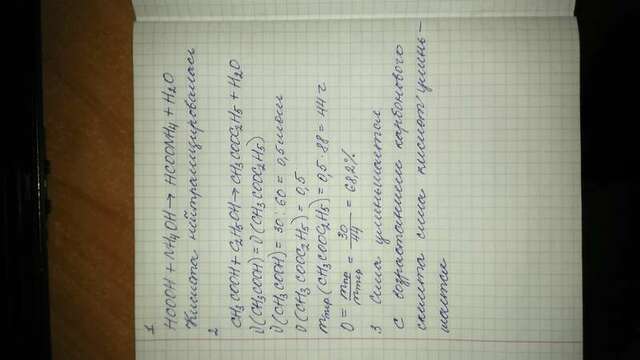 1
HCOOH + NH4OH → HCOONH4 + H2O
Кислота нейтрализировалась
2
CH3COOH + C2H5OH → CH3COOC2H5 + H2O
ν(CH3COOH) = ν(CH3COOC2H5)
ν(CH3COOH) = 30 : 60 = 0,5 моль
ν(CH3COOC2H5) = 0,5
mтер(CH3COOC2H5) = 0,5 · 88 = 44 г
η = mпр / mтер = 30 / 44 = 68,2%
3 Сила уменьшается
с возрастанием карбонового
скелета сила кислот уменьшается